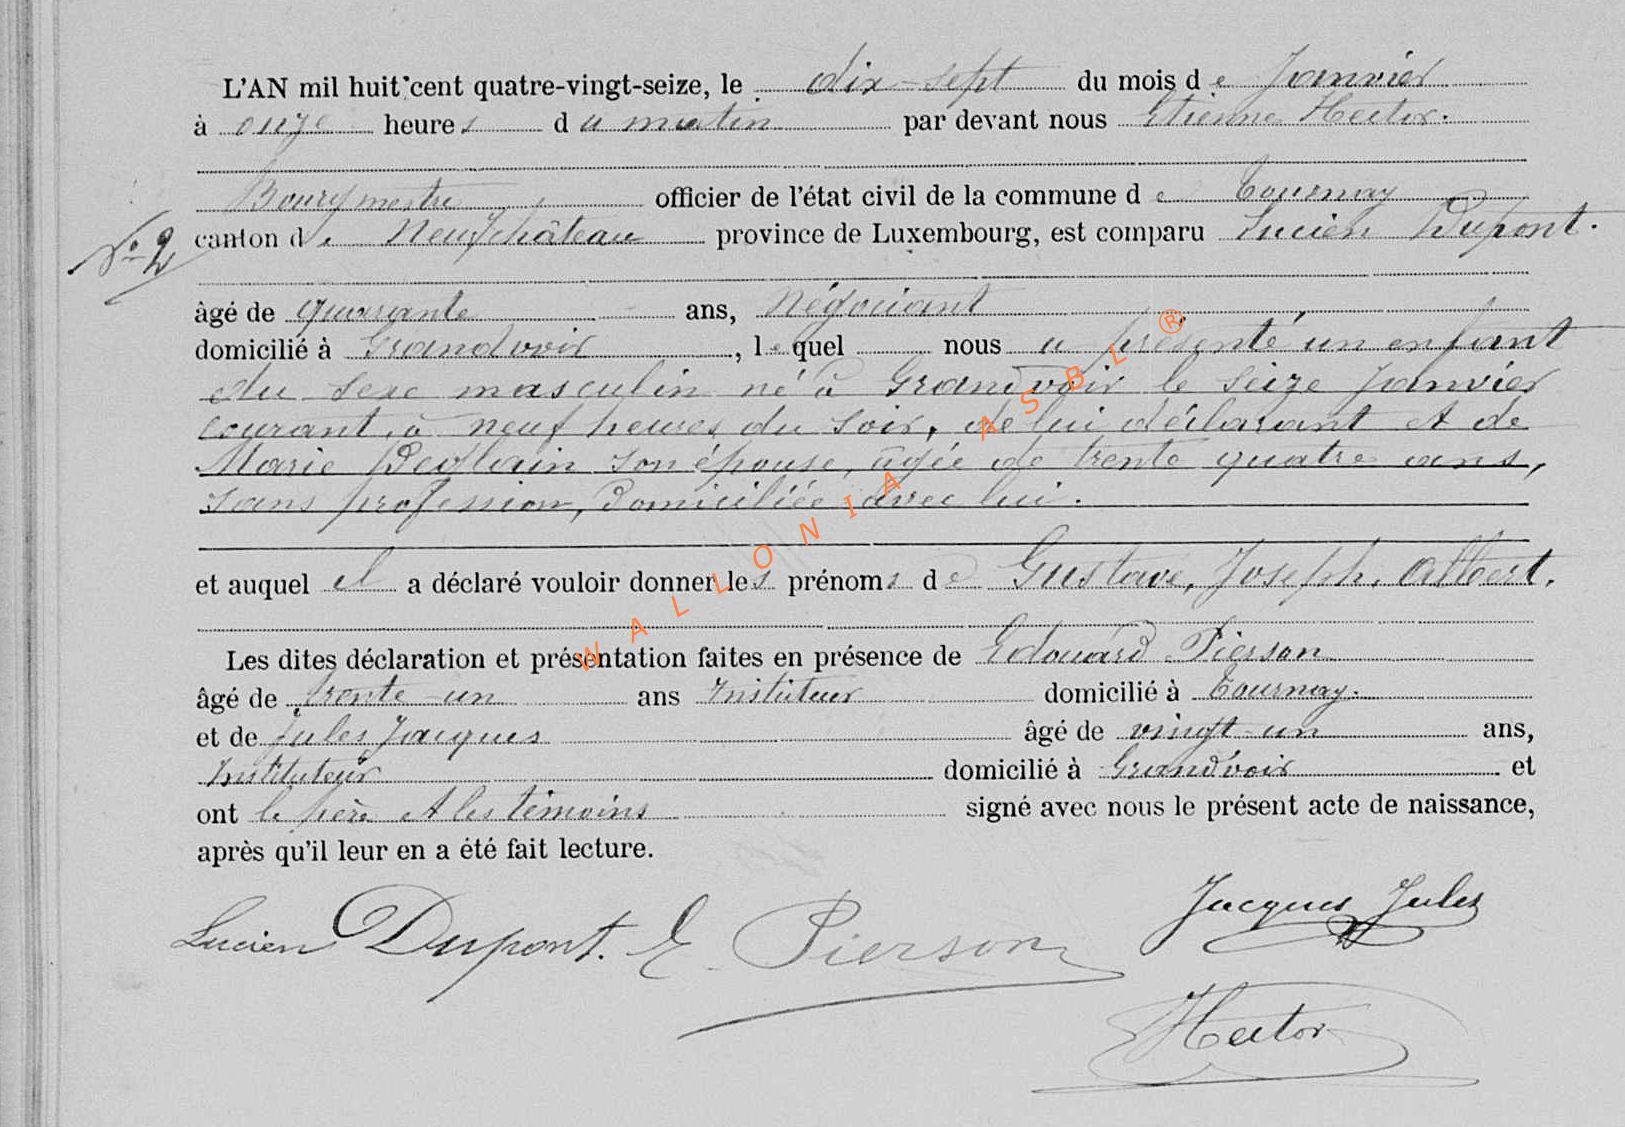 L'AN mil huit cent quatre-vingt-seize, le dix-sept du mois de Janvier
à onze heures du matin par devant nous Etienne Hector.
Bourgmestre officier de l'état civil de la commune de Tournay
N° 2 canton de Neufchâteau province de Luxembourg, est comparu Lucien Dupont.
âgé de quarante ans, Négociant
domicilié à Grandvoir, lequel nous a présenté un enfant
du sexe masculin né à Grandvoir le seize Janvier
courant, à neuf heures du soir, de lui déclarant et de
Marie son épouse, âgée de trente quatre ans,
sans profession, Domiciliée avec lui.
et auquel il a déclaré vouloir donner les prénoms de Gustave, Joseph, Albert.
Les dites déclaration et présentation faites en présence de Edouard Pierson
âgé de trente-un ans Instituteur domicilié à Tournay.
et de Jules Jacques âgé de vingt-un ans,
Instituteur domicilié à Grandvoir et
ont le père et les témoins signé avec nous le présent acte de naissance,
après qu'il leur en a été fait lecture.
Lucien Dupont. E. Pierson Jacques Jules
Hector
WALLONIA ASBL ®